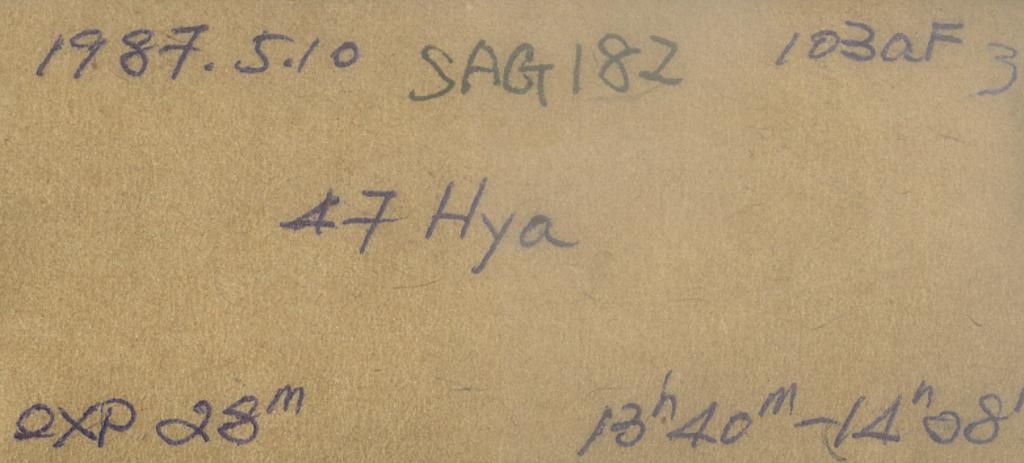 1987.5.10 SAG182 103aF 3
47 Hya
exp 28m
13h40m-14h08m